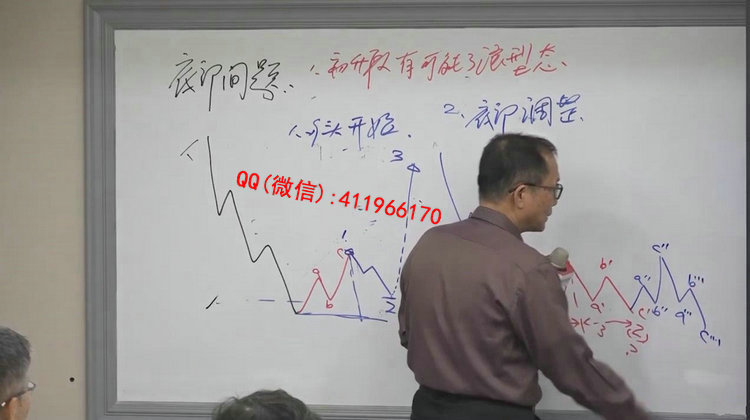 底部问题、
1、初升段有可能3浪型态
1、多头开始、
2、底部调整
QQ(微信):411966170
3
1
a
b
c
2
b'
c''
a''
b'''
1
a'
c'
b''
a'''
c'''
3
(2)
?